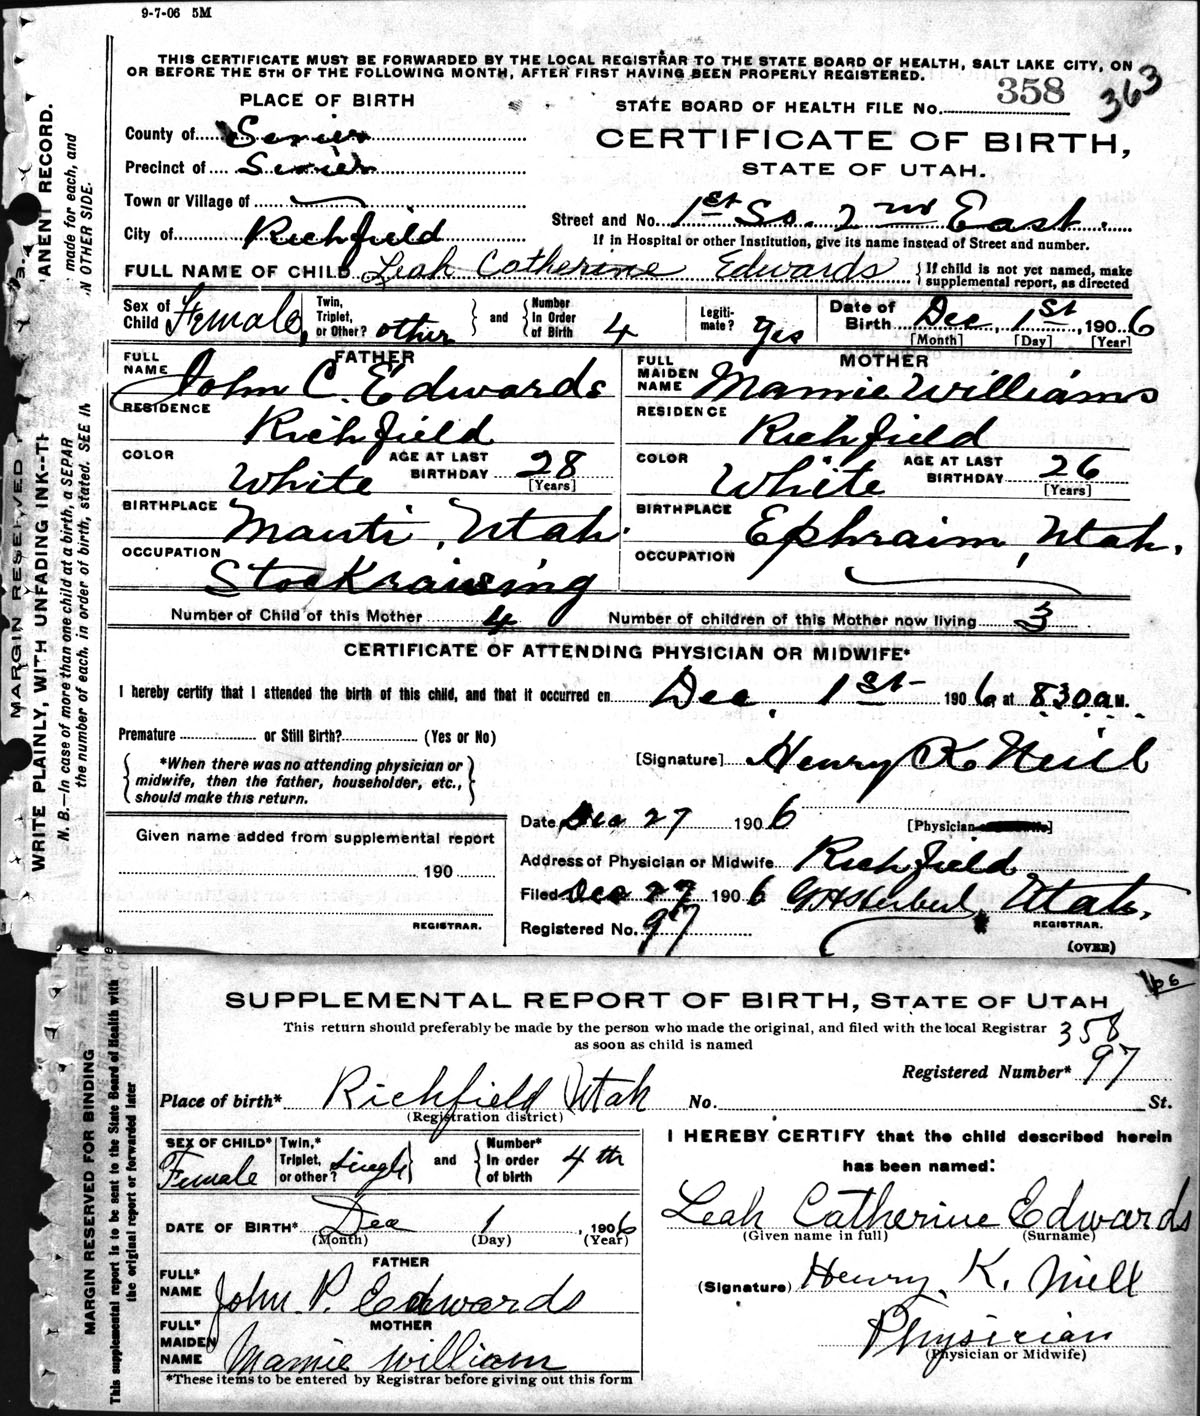 9-7-06 5M
THIS CERTIFICATE MUST BE FORWARDED BY THE LOCAL REGISTRAR TO THE STATE BOARD OF HEALTH, SALT LAKE CITY, ON
OR BEFORE THE 5TH OF THE FOLLOWING MONTH, AFTER FIRST HAVING BEEN PROPERLY REGISTERED.
363
PLACE OF BIRTH
STATE BOARD OF HEALTH FILE No. 358
County of Sevier
CERTIFICATE OF BIRTH,
Precinct of Sevier
STATE OF UTAH.
Town or Village of
Street and No. 1st So. 2nd East.
City of Richfield
If in Hospital or other Institution, give its name instead of Street and number.
FULL NAME OF CHILD Leah Catherine Edwards { If child is not yet named, make
supplemental report, as directed
Sex of Child Female, Twin, Triplet, or Other? other } and { Number In Order of Birth 4 Legiti-mate? Yes Date of Birth Dec, 1st, 1906
[Month] [Day] [Year]
FATHER
FULL NAME John C. Edwards
RESIDENCE
Richfield
COLOR White AGE AT LAST BIRTHDAY 28
[Years]
BIRTHPLACE Manti, Utah.
OCCUPATION
Stockraising
MOTHER
FULL MAIDEN NAME Mamie Williams
RESIDENCE
Richfield
COLOR White AGE AT LAST BIRTHDAY 26
[Years]
BIRTHPLACE Ephraim, Utah.
OCCUPATION
Number of Child of this Mother 4 Number of children of this Mother now living 3
CERTIFICATE OF ATTENDING PHYSICIAN OR MIDWIFE*
I hereby certify that I attended the birth of this child, and that it occurred on Dec, 1st 1906, at 830 a M.
Premature or Still Birth? (Yes or No)
*When there was no attending physician or
midwife, then the father, householder, etc.,
should make this return.
[Signature] Henry K Neill
Date Dec 27 1906 [Physician
Given name added from supplemental report
190
REGISTRAR.
Address of Physician or Midwife Richfield
Filed Dec 27 1906 Utah.
REGISTRAR.
Registered No. 97
(OVER)
MARGIN RESERVED
WRITE PLAINLY, WITH UNFADING INK--TH
ANENT RECORD.
N. B.—In case of more than one child at a birth, a SEPAR
made for each, and
the number of each, in order of birth, stated. SEE IN
N OTHER SIDE.
SUPPLEMENTAL REPORT OF BIRTH, STATE OF UTAH
This return should preferably be made by the person who made the original, and filed with the local Registrar
as soon as child is named
358
Registered Number* 97
Place of birth* Richfield Utah No. St.
(Registration district)
SEX OF CHILD* Female Twin,* Triplet, or other? single } and { Number* In order of birth 4th
DATE OF BIRTH* Dec 1, 1906
(Month) (Day) (Year)
FATHER
FULL* NAME John P. Edwards
MOTHER
FULL* MAIDEN NAME Mamie William
*These items to be entered by Registrar before giving out this form
I HEREBY CERTIFY that the child described herein
has been named:
Leah Catherine Edwards
(Given name in full) (Surname)
(Signature) Henry K. Nill
Physician
(Physician or Midwife)
MARGIN RESERVED FOR BINDING
This supplemental report is to be sent to the State Board of Health with
the original report or forwarded later